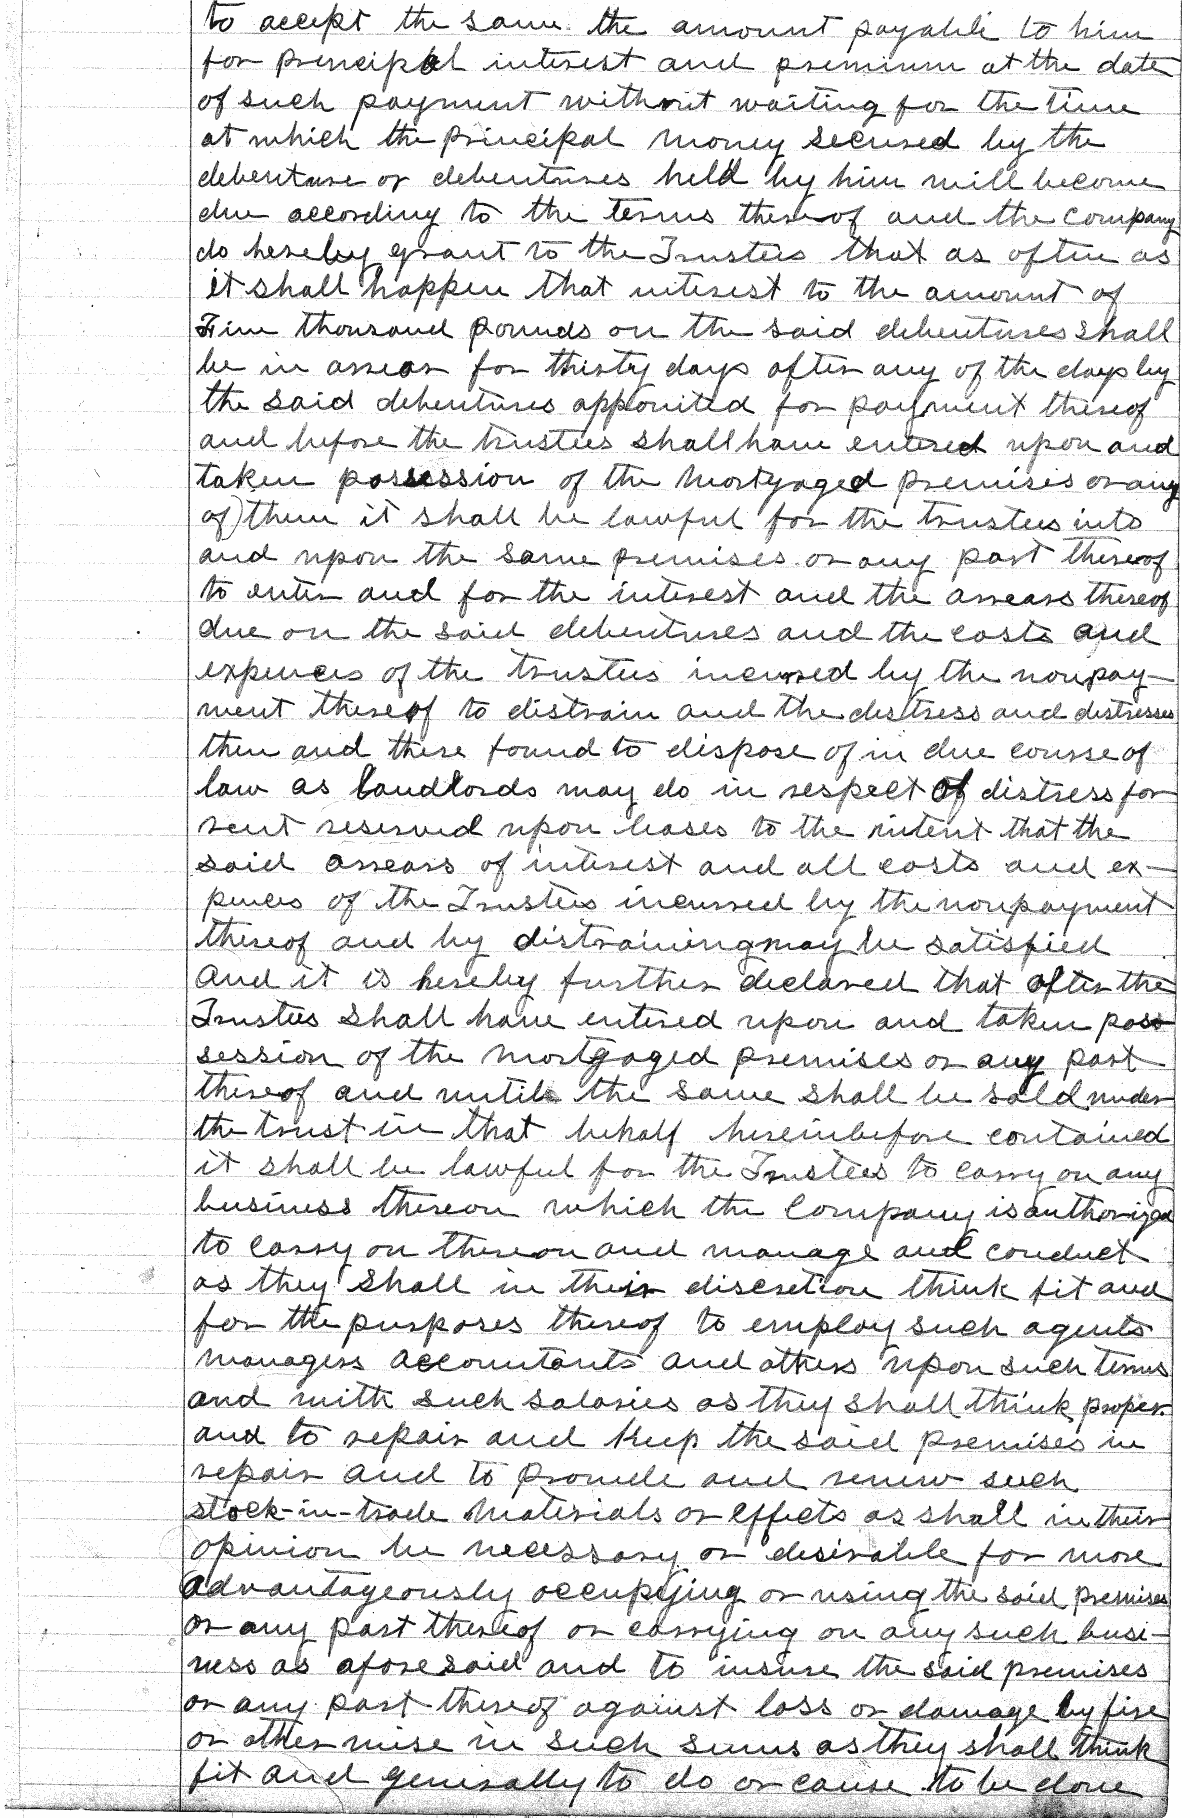 to accept the same the amount payable to him
for principal interest and premium at the date
of such payment without waiting for the time
at which the principal money secured by the
debenture or debentures held by him will become
due according to the terms thereof and the Company
do hereby grant to the Trustees that as often as
it shall happen that interest to the amount of
Five thousand pounds on the said debentures shall
be in arrear for thirty days after any of the days by
the said debentures appointed for payment thereof
and before the trustees shall have entered upon and
taken possession of the mortgaged premises or any
of them it shall be lawful for the trustees into
and upon the same premises or any part thereof
to enter and for the interest and the arrears thereof
due on the said debentures and the costs and
expences of the trustees incurred by the nonpay-
ment thereof to distrain and the distress and distresses
then and there found to dispose of in due course of
law as landlords may do in respect of distress for
rent reserved upon leases to the intent that the
said arrears of interest and all costs and ex-
pences of the Trustees incurred by the nonpayment
thereof and by distraining may be satisfied
And it is hereby further declared that after the
Trustees shall have entered upon and taken pos-
session of the mortgaged premises or any part
thereof and until the same shall be sold under
the trust in that behalf hereinbefore contained
it shall be lawful for the Trustees to carry on any
business thereon which the Company is authorized
to carry on thereon and manage and conduct
as they shall in their discretion think fit and
for the purposes thereof to employ such agents
managers accountants and others upon such terms
and with such salaries as they shall think proper
and to repair and keep the said premises in
repair and to provide and renew such
stock-in-trade materials or effects as shall in their
opinion be necessary or desirable for more
advantageously occupying or using the said premises
or any part thereof or carrying on any such busi-
ness as aforesaid and to insure the said premises
or any part thereof against loss or damage by fire
or otherwise in such sums as they shall think
fit and generally to do or cause to be done